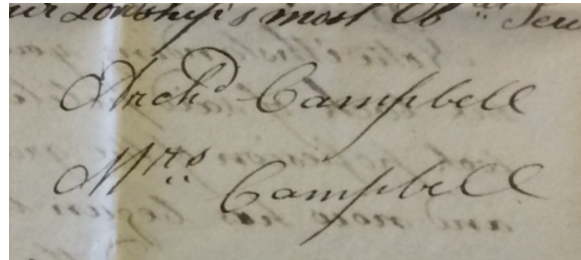 ur Lordship's most Ob.nt Serv
Archd Campbell
Mrs Campbell